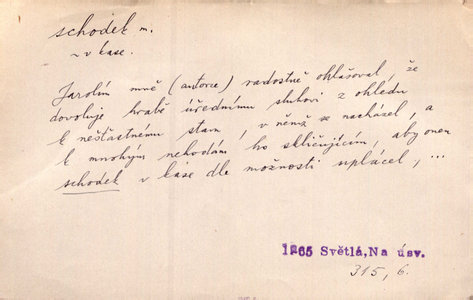 schodek m.
~ v kase.
Jarolím mně (autorce) radostně ohlašoval že
dovoluje hrabě úřednímu sluhovi z ohledu
k nešťastnému stavu, v němž se nacházel, a
k mnohým nehodám ho skličujícím, aby onen
schodek v kase dle možnosti uplácel, ...
1865 Světlá, Na úsv.
315, 6.